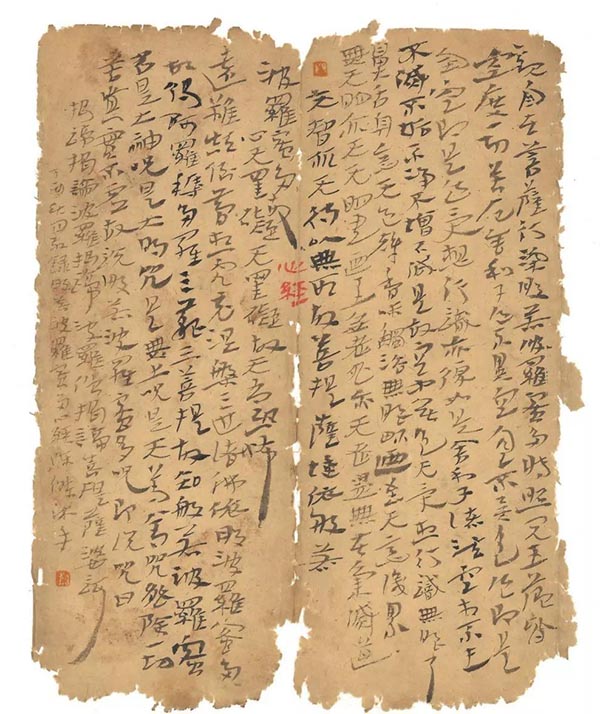 觀自在菩薩行深般若波羅蜜多時照見五蘊皆
空度一切苦厄舍利子色不異空空不異色色即是
空空即是色受想行識亦復如是舍利子諸法空相不生
不滅不垢不淨不增不減是故空中無色无受想行識無眼耳
鼻舌身意无色聲香味觸法無眼界乃至无意識界
無无明亦无无明盡乃至無老死亦无老死盡無苦集滅道
无智亦无得以無所得故菩提薩埵依般若
心經
波羅蜜多故
心无罣礙无罣礙故无有恐怖
遠離顛倒夢想究竟涅槃三世諸佛依般若波羅蜜多
故得阿耨多羅三藐三菩提故知般若波羅蜜
多是大神咒是大明咒是無上咒是无等等咒能除一切
苦真實不虛故說般若波羅蜜多咒即說咒曰
揭諦揭諦波羅揭諦波羅僧揭諦菩提薩婆訶
丁酉秋日敬錄般若波羅蜜多心經 沐手